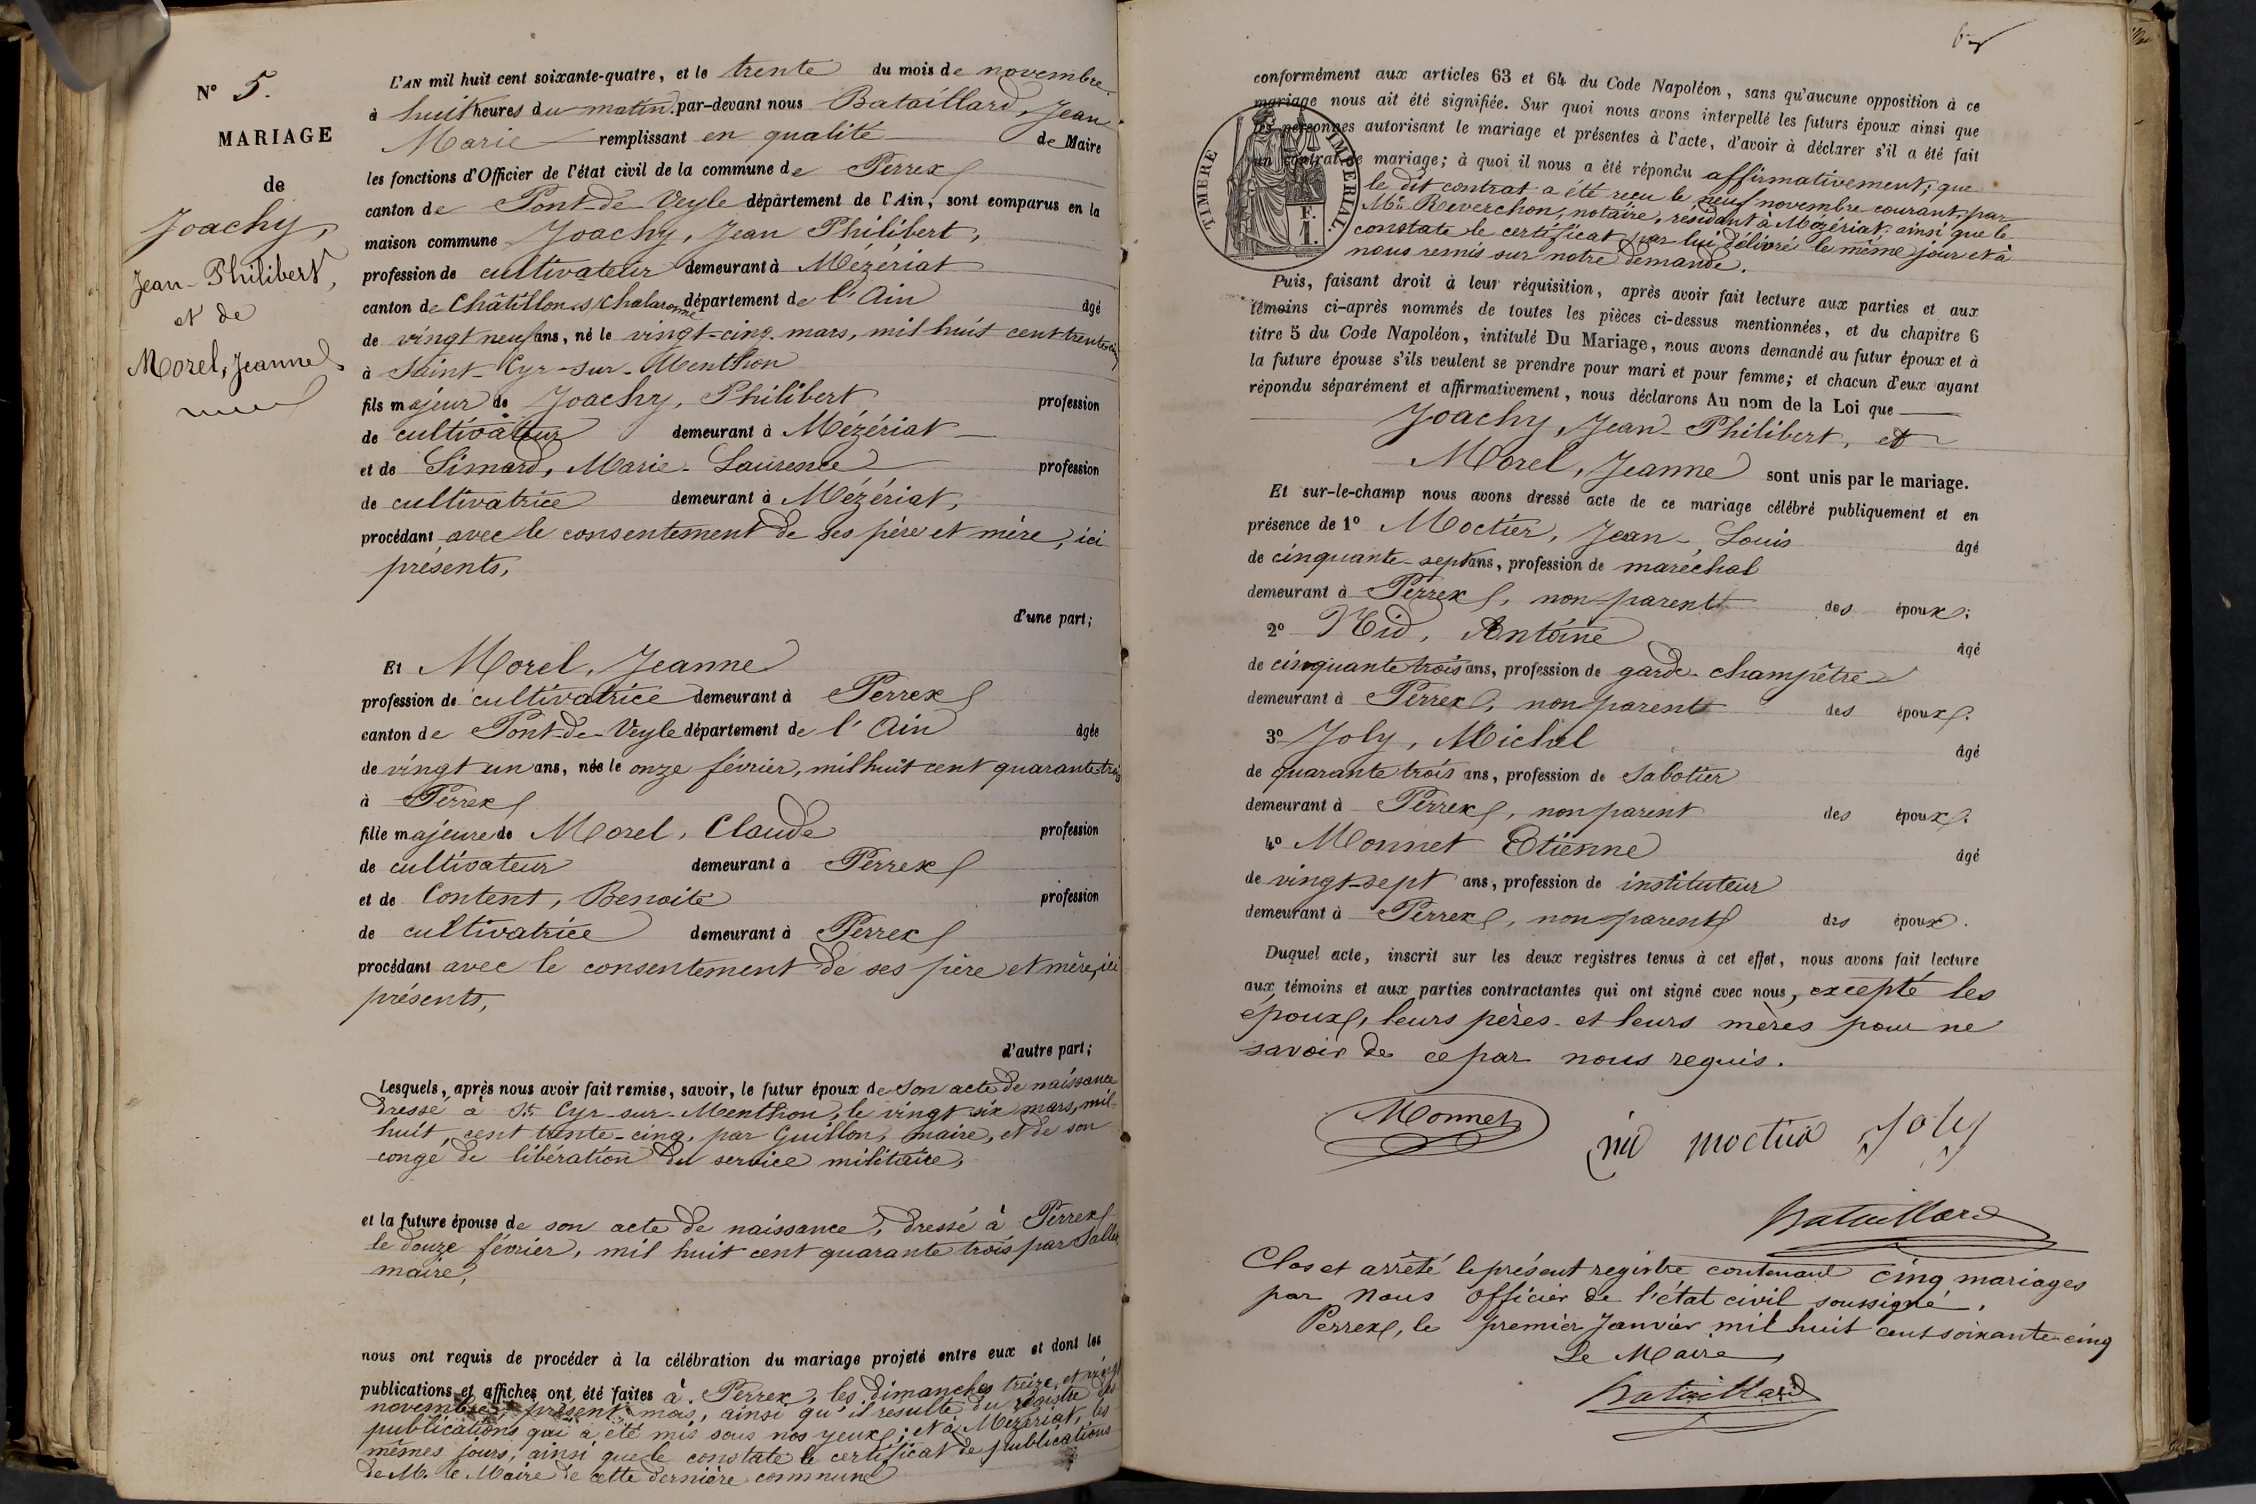 N° 5.
MARIAGE
de
Joachy,
Jean-Philibert,
et de
Morel, Jeanne
L'AN mil huit cent soixante-quatre, et le trente du mois de novembre,
à huit heures du matin par-devant nous Bataillard, Jean
Marie remplissant en qualité de Maire
les fonctions d'Officier de l'état civil de la commune de Perrex
canton de Pont-de-Veyle département de l'Ain, sont comparus en la
maison commune Joachy, Jean Philibert,
profession de cultivateur demeurant à Mézériat
canton de Châtillon s/ Chalaronne département de l'Ain âgé
de vingt neuf ans, né le vingt-cinq mars, mil huit cent trente cinq
à Saint-Cyr-sur-Menthon
fils majeur de Joachy, Philibert profession
de cultivateur demeurant à Mézériat
et de Simard, Marie-Laurence profession
de cultivatrice demeurant à Mézériat,
procédant avec le consentement de ses père et mère, ici
présents,
d'une part;
Et Morel, Jeanne
profession de cultivatrice demeurant à Perrex
canton de Pont-de-Veyle département de l'Ain âgée
de vingt un ans, née le onze février, mil huit cent quarante trois
à Perrex
fille majeure de Morel, Claude profession
de cultivateur demeurant à Perrex
et de Content, Benoite profession
de cultivatrice demeurant à Perrex
procédant avec le consentement de ses père et mère, ici
présents,
d'autre part;
Lesquels, après nous avoir fait remise, savoir, le futur époux de son acte de naissance
dressé à St Cyr-sur-Menthon, le vingt six mars, mil
huit cent trente-cinq, par Guillon, maire, et de son
congé de libération du service militaire,
et la future épouse de son acte de naissance, dressé à Perrex
le douze février, mil huit cent quarante trois par
maire,
nous ont requis de procéder à la célébration du mariage projeté entre eux et dont les
publications et affiches ont été faites à Perrex, les dimanches treize et vingt
novembre, présent mois, ainsi qu'il résulte du registre des
publications qui a été mis sous nos yeux; et à Mézériat, les
mêmes jours, ainsi que le constate le certificat de publications
de M. le Maire de cette dernière commune
conformément aux articles 63 et 64 du Code Napoléon, sans qu'aucune opposition à ce
mariage nous ait été signifiée. Sur quoi nous avons interpellé les futurs époux ainsi que
les personnes autorisant le mariage et présentes à l'acte, d'avoir à déclarer s'il a été fait
un contrat de mariage; à quoi il nous a été répondu affirmativement; que
le dit contrat a été reçu le neuf novembre courant, par
Me Reverchon, notaire, résidant à Mézériat, ainsi que le
constate le certificat par lui délivré le même jour et à
nous remis sur notre demande.
TIMBRE IMPERIAL.
F.
1.
Puis, faisant droit à leur réquisition, après avoir fait lecture aux parties et aux
témoins ci-après nommés de toutes les pièces ci-dessus mentionnées, et du chapitre 6
titre 5 du Code Napoléon, intitulé Du Mariage, nous avons demandé au futur époux et à
la future épouse s'ils veulent se prendre pour mari et pour femme; et chacun d'eux ayant
répondu séparément et affirmativement, nous déclarons Au nom de la Loi que
Joachy, Jean-Philibert, et
Morel, Jeanne sont unis par le mariage.
Et sur-le-champ nous avons dressé acte de ce mariage célébré publiquement et en
présence de 1° Moctier, Jean-Louis âgé
de cinquante-sept ans, profession de maréchal
demeurant à Perrex, non parent des époux;
2° Nid, Antoine âgé
de cinquante trois ans, profession de garde-champêtre
demeurant à Perrex, non parent des époux.
3° Joly, Michel âgé
de quarante trois ans, profession de sabotier
demeurant à Perrex, non parent des époux.
4° Monnet Etienne âgé
de vingt-sept ans, profession de instituteur
demeurant à Perrex, non parent des époux.
Duquel acte, inscrit sur les deux registres tenus à cet effet, nous avons fait lecture
aux témoins et aux parties contractantes qui ont signé avec nous, excepté les
époux, leurs pères et leurs mères pour ne
savoir de ce par nous requis.
Monnet
nid moctier Joly
Bataillard
Clos et arrêté le présent registre contenant cinq mariages
par Nous Officier de l'état civil soussigné.
Perrex, le premier Janvier mil huit cent soixante-cinq
Le Maire,
Bataillard